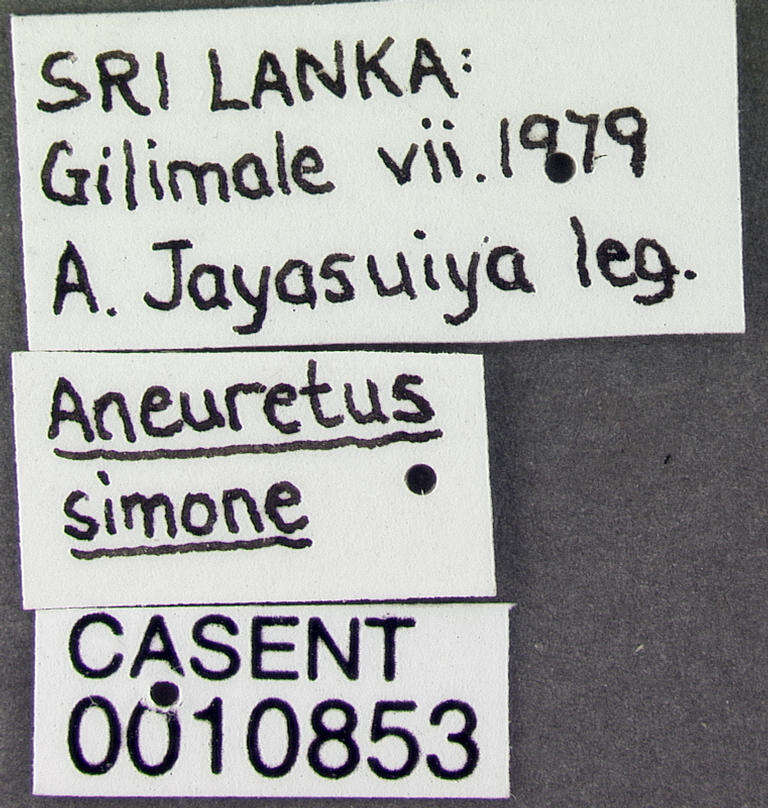 SRI LANKA:
Gilimale vii.1979
A. Jayasuiya leg.
Aneuretus
simone
CASENT
0010853